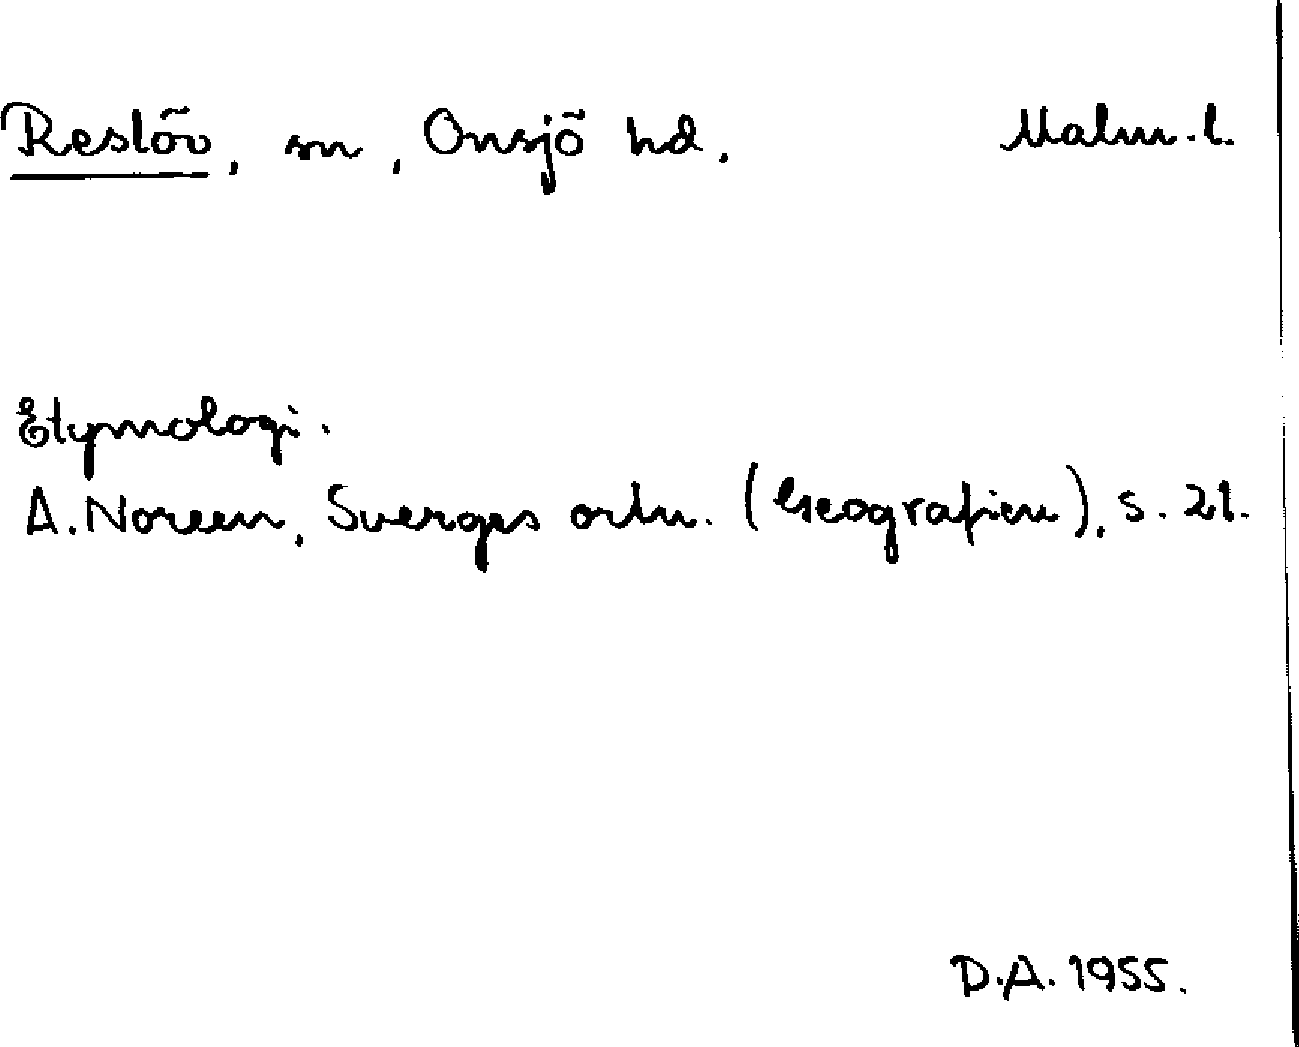 Reslöv, sn, Onsjö hd. Malm. l.
Etymologi.
A. Noreen, Sverges ortn. (Geografien), s. 21.
D.A. 1955.